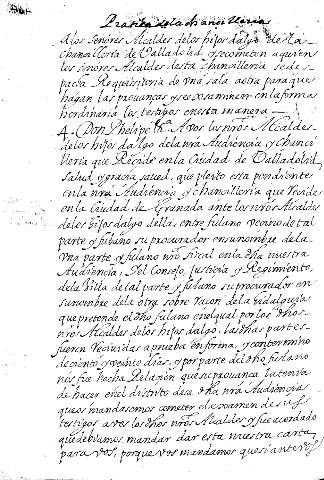 Pratica de la chancilleria
A los señores Alcaldes de los hijos dalgo de la
chancilleria de Valladolid se cometen aquien
los señores Alcaldes desta chancilleria se des
pacha Requisitoria de una sala a otra para que
hagan las provanças y se examinen en la forma
hordinaria los testigos en esta manera
Don Phelipe & A vos los nros Alcaldes
de los hijos dalgo de la nra Audiencia y chanci
lleria que Reside en la ciudad de Valladolid
salud y gracia saued que pleito esta pendiente
en la nra Audiencia y chancilleria que Reside
en la ciudad de Granada ante los nros Alcaldes
de los hijos dalgo della, entre fulano vecino de tal
parte y fulano su procurador en su nombre de la
una parte y fulano nro fiscal en la dha nuestra
Audiencia, y el Consejo, Justicia y Regimiento,
de la Villa de tal parte y fulano su procurador en
su nombre de la otra sobre Raçon de la hidalguia
que pretende el dho fulano en el qual por los dhos
nros Alcaldes de los hijos dalgo, las dhas partes
fueron Receuidas a prueba en forma, y con termino
de ciento y veinte dias, y por parte del dho fulano
nos fue hecha Relaçion que su provança la tenia
de hacer en el distrito desa dha nra Audiencia
que os mandasemos cometer el examen de sus
testigos a vos los dhos nros Alcaldes y fue acordado
que deviamos mandar dar esta nuestra carta
para vos, por que vos mandamos que si ante vos